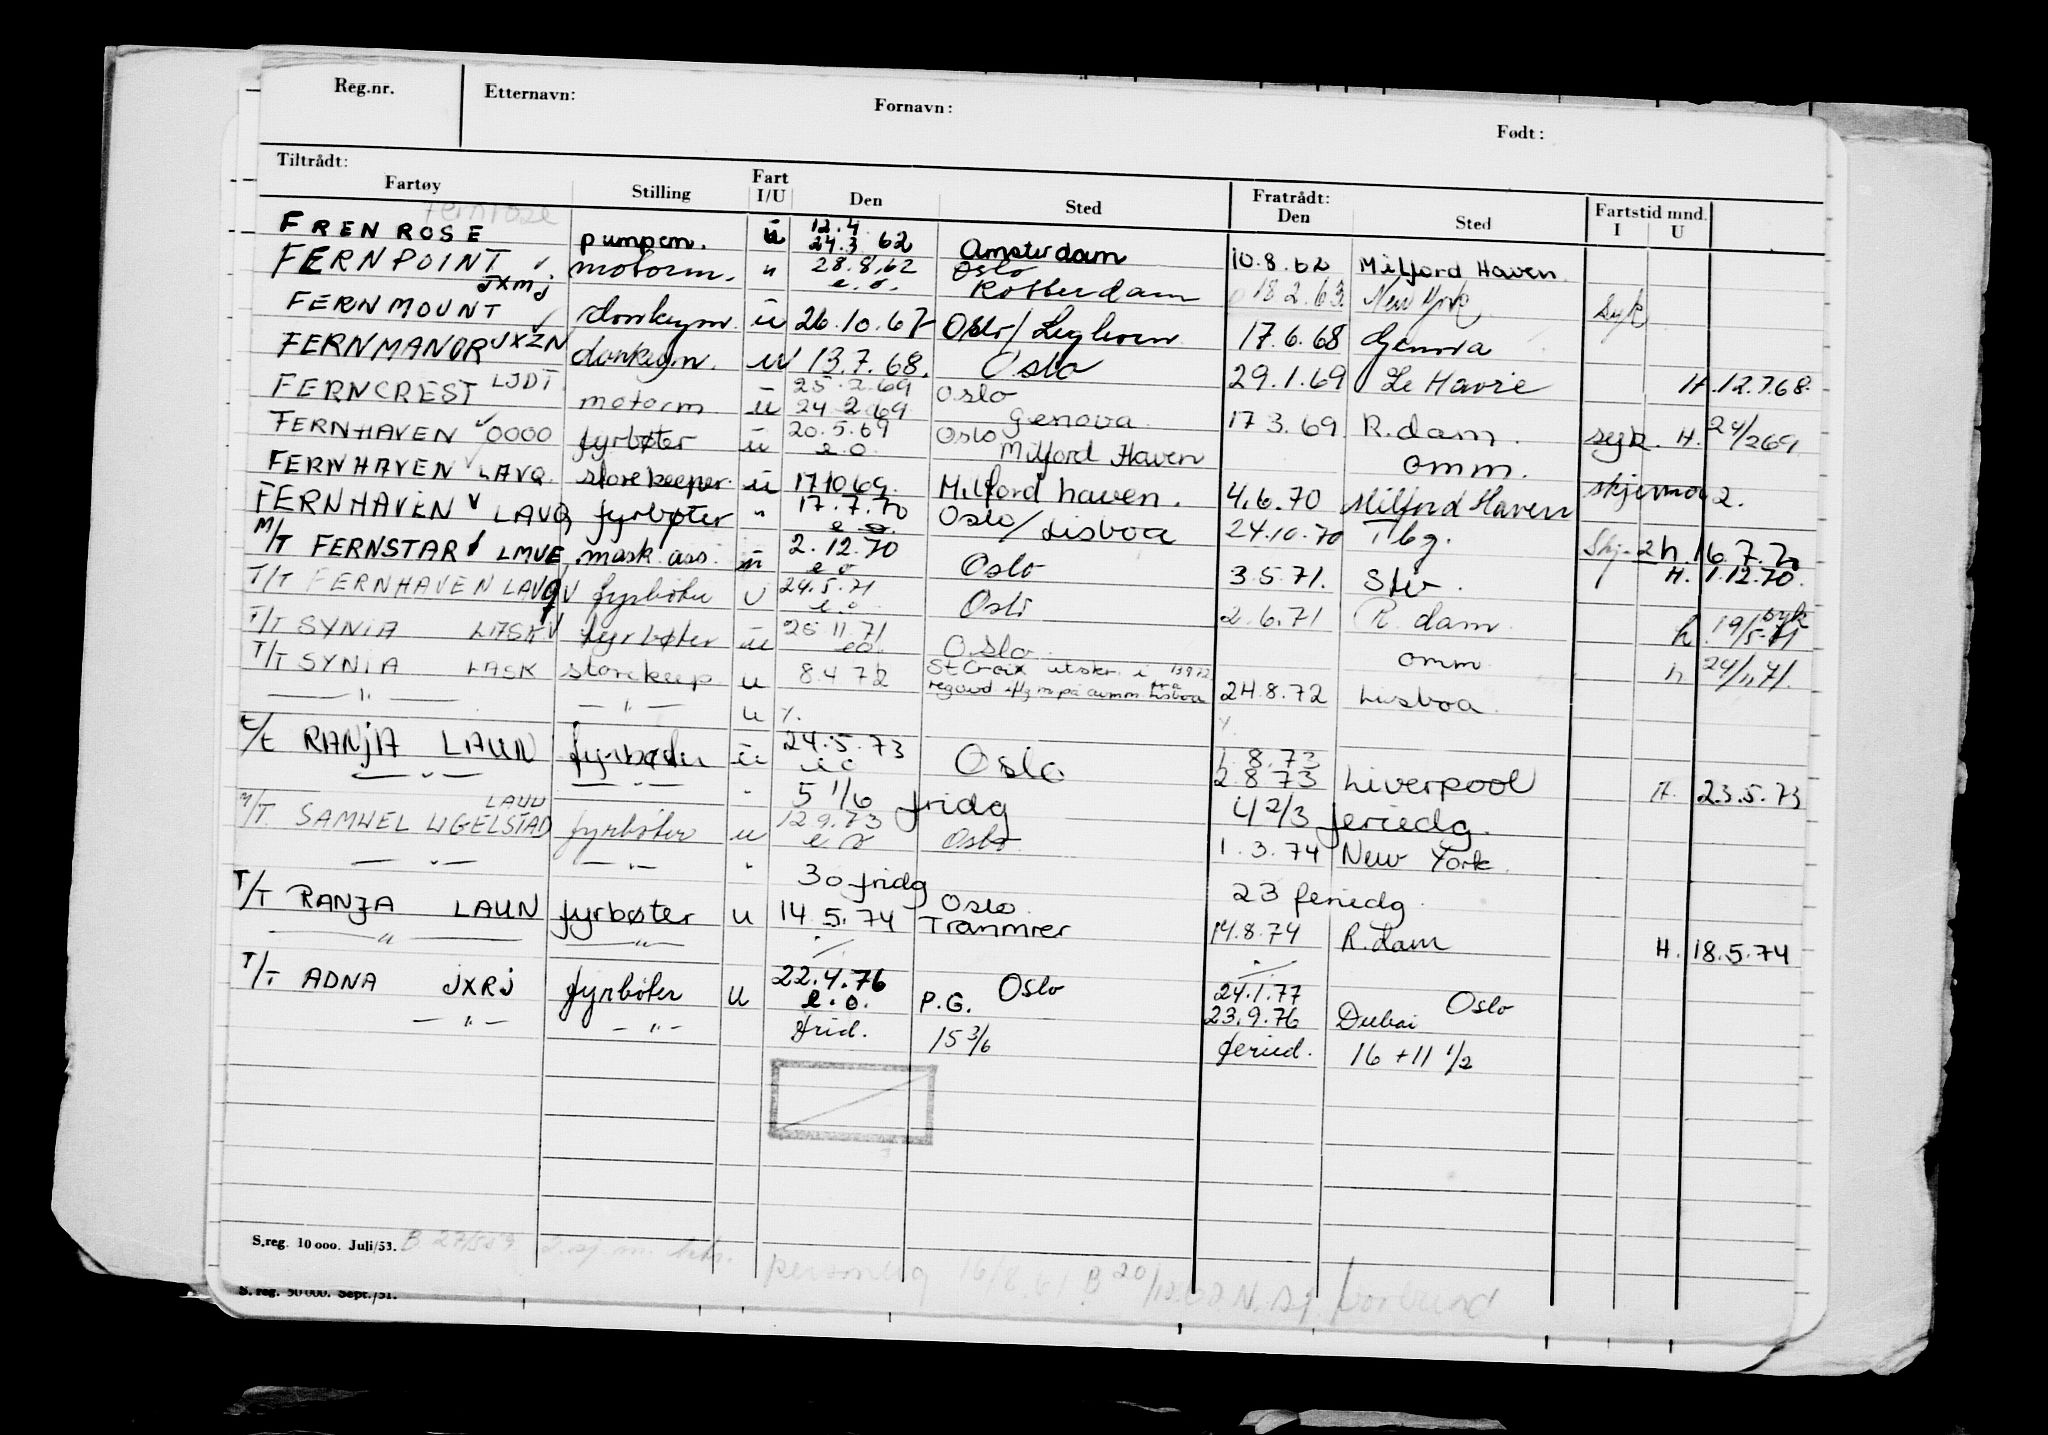 Reg.nr. Etternavn: Fornavn: Født:
Tiltrådt: Fratrådt:
Fartøy Stilling Fart I/U Den Sted Den Sted Fartstid mnd. I U
Fernrose
FRENROSE pumpem. u 12.4 24.3.62 Amsterdam 10.8.62 Milford Haven
FERNPOINT JXMJ motorm. " 28.8.62 e.o. Oslo Rotterdam 18.2.63 New York syk
FERNMOUNT donkeym. u 26.10.67 Oslo/Leghorn 17.6.68 Genova
FERNMANOR JXZN donkeym. u 13.7.68. Oslo 29.1.69 Le Havre H. 12.7.68.
FERNCREST LJDT motorm u 25.2.69 24.2.69 Oslo Genova 17.3.69 R.dam. syk. H. 24/269
FERNHAVEN 0000 fyrbøter u 20.5.69 e.o. Oslo Milford Haven omm. skjema 2.
FERNHAVEN LAVQ storekeeper u 171069. Milford haven. 4.6.70 Milford Haven
FERNHAVEN LAVQ fyrbøter " 17.7.70 e.o. Oslo/Lisboa 24.10.70 Tbg. Skj. 2 h 16.7.70
M/T FERNSTAR LMVE, mask.ass. u 2.12.70 e o Oslo 3.5.71. Slv. H. 1.12.70.
T/T FERNHAVEN LAVQ fyrbøter U 24.5.71 e.o. Oslo 2.6.71 R.dam. syk h. 19/5-71
T/T SYNIA LASK fyrbøter u 25.11.71 eo. Oslo. omm h 24/11.71.
T/T SYNIA LASK storekeep u 8.4 72 St Croix utskr. i fra Lisboa 24.8.72 Lisboa
— " — — " — u ⁒ ⁒
T/T RANJA LAUN fyrbøter u 24.5.73 e o Oslo 1.8.73 2 8 73 Liverpool H. 23.5.73
— " — — " — " 5 1/6 fridg 4 2/3 feriedg.
M/T. SAMUEL UGELSTAD LAUU fyrbøter u 12.9.73 e o Oslo 1.3.74 New York.
— " — — " — " 30 fridg 23 feriedg.
T/T RANJA LAUN fyrbøter u 14.5.74 Oslo Tranmrer 14.8.74 R.dam H. 18.5.74
— " — — " — ⁒ ⁒
T/T ADNA JXRJ fyrbøter u 22.4.76 e.o. P.G. Oslo 24.1.77 23.9.76 Dubai Oslo
— " — — " — frid. 15 3/6 feried. 16 + 11 1/2
S.reg. 10 000. Juli/53.
personlig
S. reg. 50 000. Sept./51.